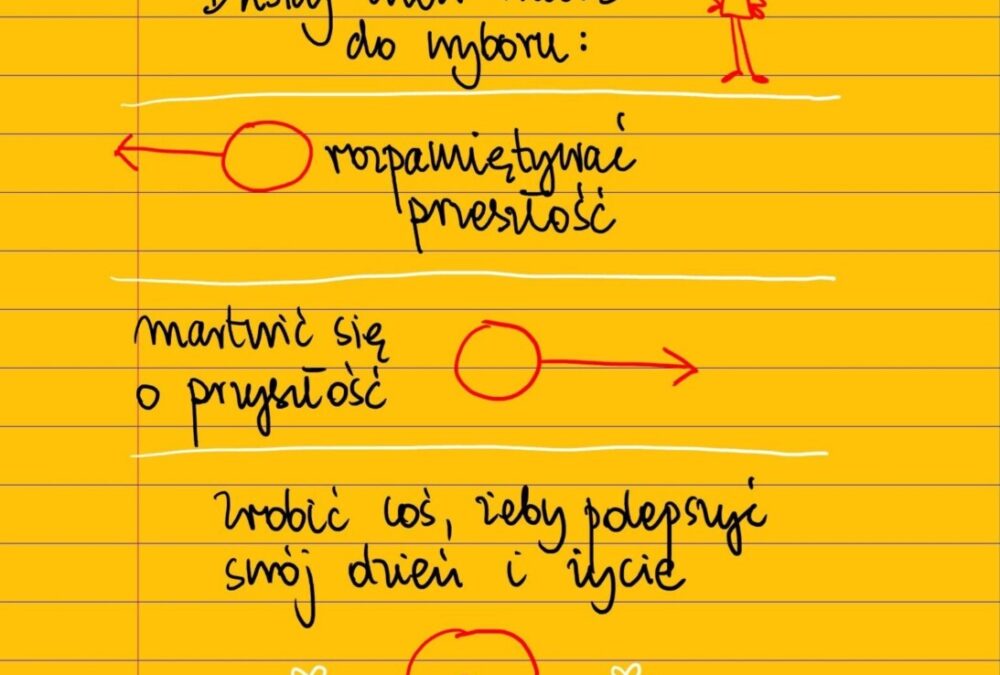 do wyboru:
rozpamiętywać
przeszłość
martwić się
o przyszłość
zrobić coś, żeby polepszyć
swój dzień i życie